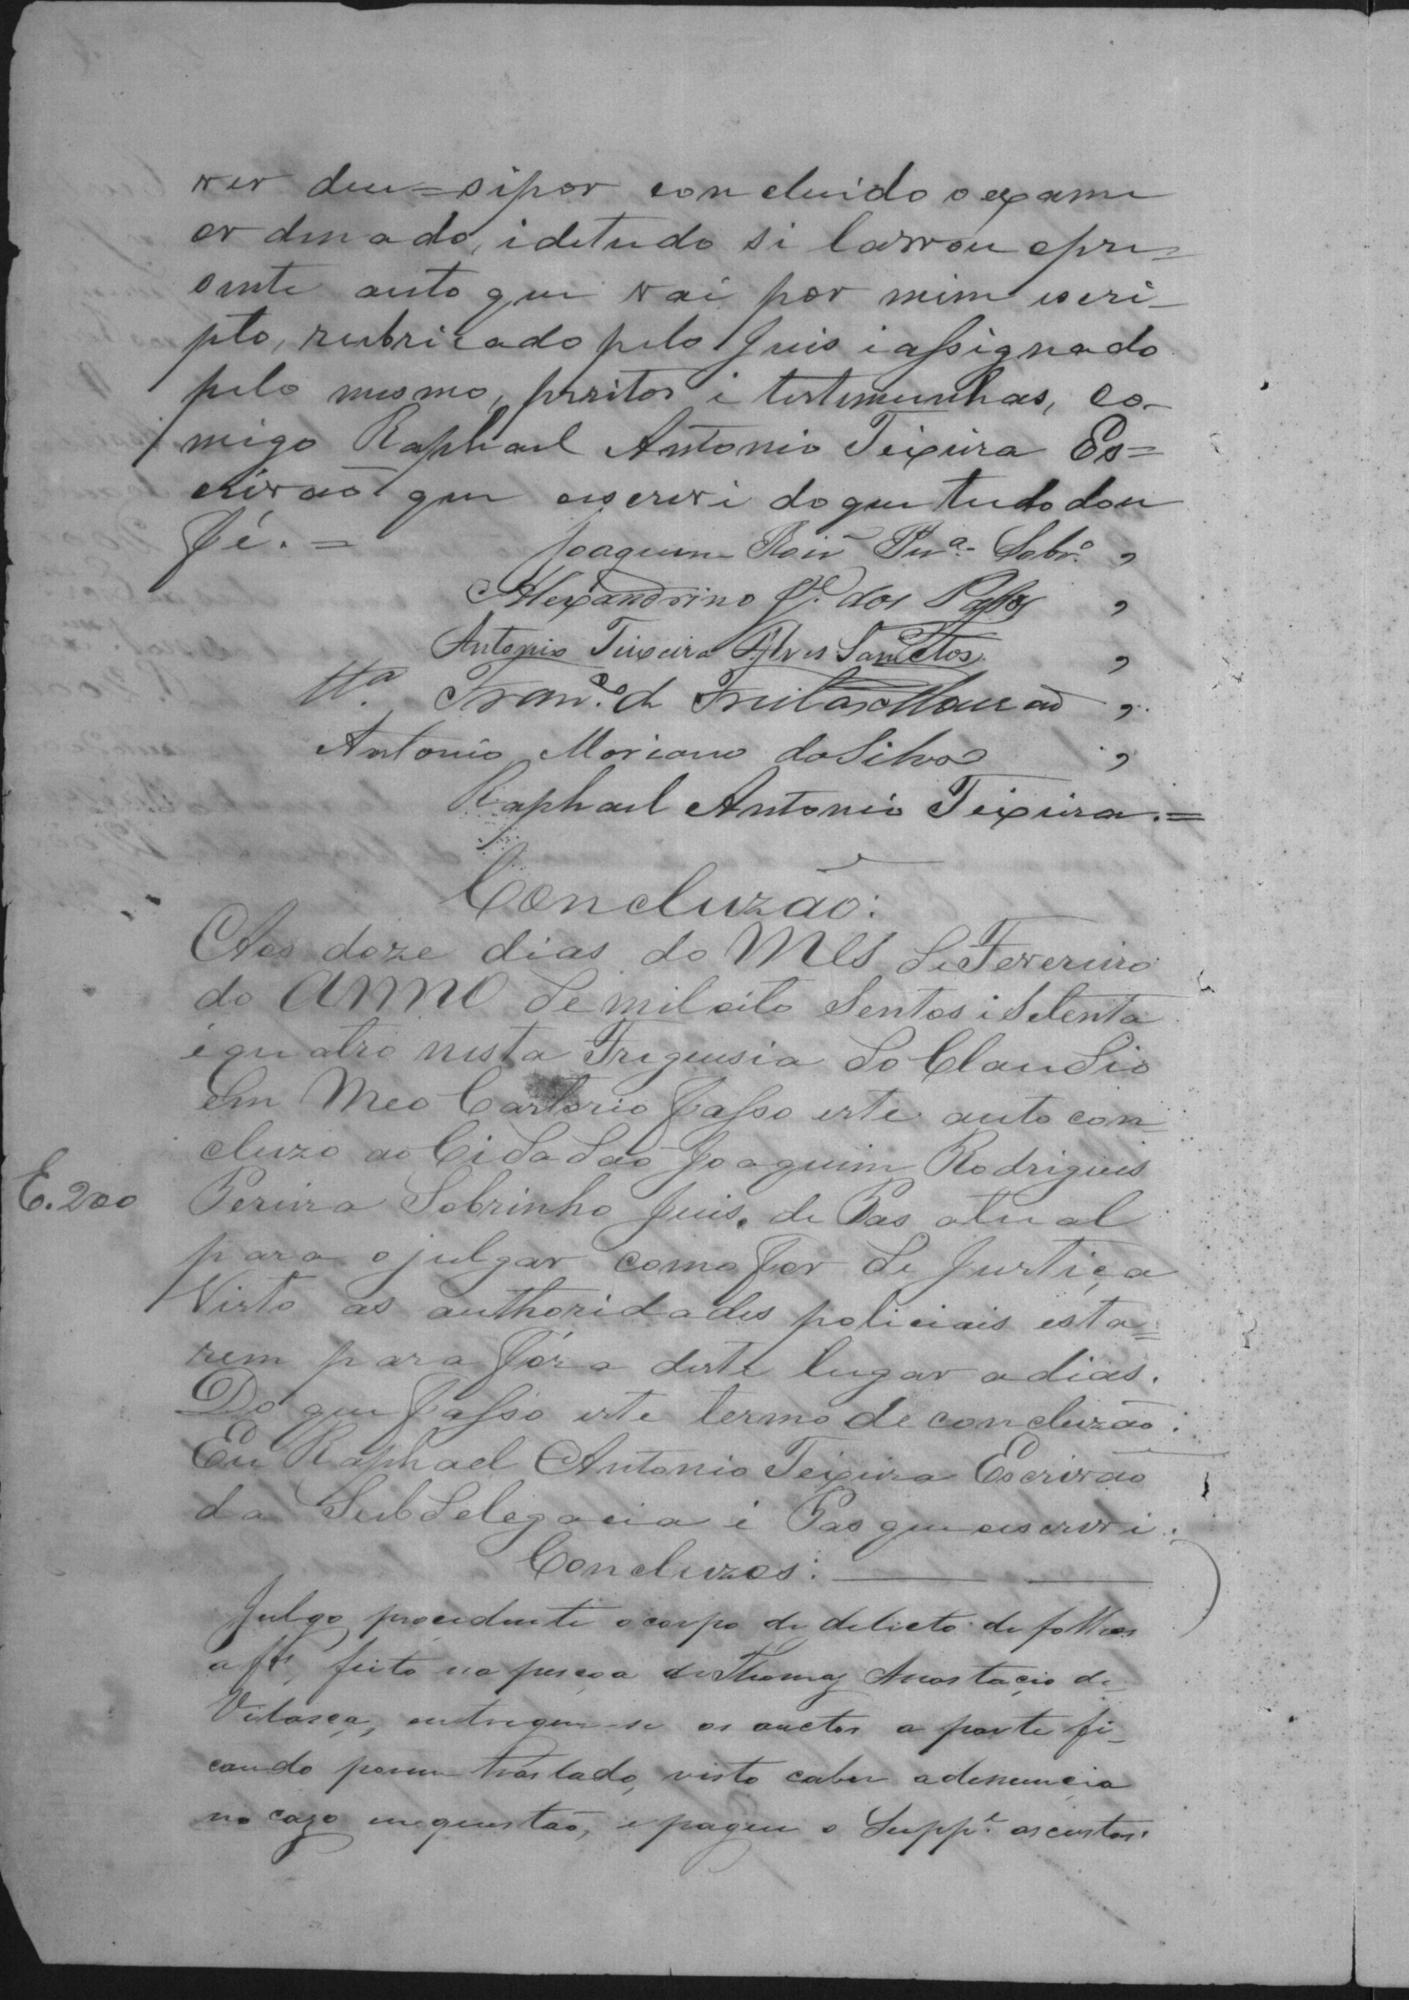 ver deu=sipor concluido o exame
ordenado, i detudo si lavrou opre=
sente auto que vai por mim iscri-
pto, rubricado pelo Juis i assignado
pelo mesmo, peritos i testemunhas, co-
migo Raphael Antonio Teixeira Es=
crivão que oiscrevi doque tudo dou
Fé. =
Joaquim Roiz Pra. Sobro. ,
Alexandrino Je. dos Passos ,
Antonio Teixeira Alves Sanctos ,
Franco. de Freitas Mourão ,
Antonio Mariano da Silva ,
Raphael Antonio Teixeira. =
Concluzão:
Aos doze dias do Mes de Fevereiro
do Anno de mil oito sentos i Setenta
i quatro nesta Freguesia do Claudio
em Meo Cartorio fasso este auto con
cluzo ao Cidadão Joaquim Rodrigues
E. 200
Pereira Sobrinho Juis. de Pas atual
para o julgar como for de Justiça
Visto as authoridades policiais esta=
rem para fóra deste lugar a dias.
Do que fasso este termo de concluzão:
Eu Raphael Antonio Teixeira Escrivão
da Subdelegacia i Pas que oiscrevi.
Concluzos:
Julgo procedente o corpo de delicto de folhas
a fs, feito na pesoa de Thomaz Anastacio de
Vilasca, entregue-se os auctos a parte fi-
cando porem traslado, visto caber a denuncia
no cazo em questão, e pague o Suppe. as custas.